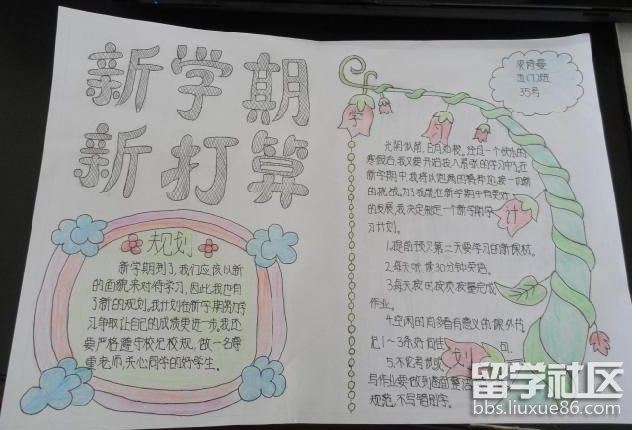 新学期
新打算
规划
新学期到了，我们应该以新
的面貌来对待学习，因此我也有
了新的规划。我计划在新学期努力学
习争取让自己的成绩更进一步。我还
要严格遵守校纪校规，做一名尊
重老师，关心同学的好学生。
五(1)班
35号
学
习
计
划
光阴似箭，日月如梭。
寒假后，我又要开始投入紧张的学习中了。在
新学期中，我将以饱满的精神迎接一切新
的挑战。为了我能在新学期中有更好
的发展，我决定制定一个新学期学
习计划。
1.提前预习第二天要学习的新课材。
2.每天听读30分钟英语。
3.每天按时按质按量完成
作业。
4.空闲时间多看有意义的课外书，
记1~3条好词佳句。
5.不论考试或
写作业要做到卷面整洁
规范，不写错别字。
留学社区
bbs.liuxue86.com